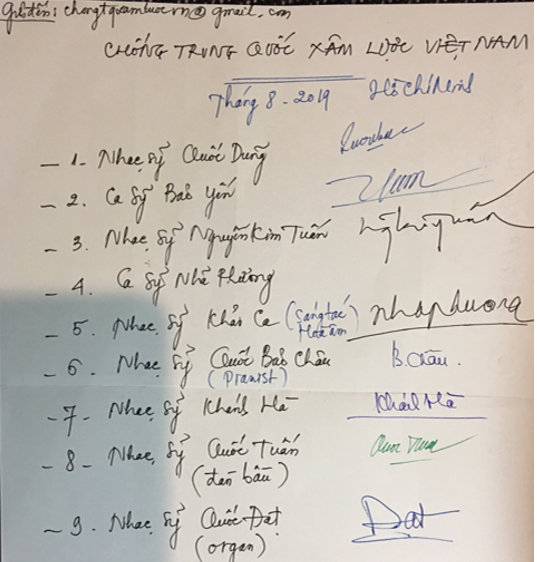 Gửi đến: chongtquamluocvn@gmail.com
CHỐNG TRUNG QUỐC XÂM LƯỢC VIỆT NAM
Tháng 8 - 2019 Hồ Chí Minh
- 1 - Nhạc sỹ Quốc Dũng
- 2. Ca sỹ Bảo Yến
- 3. Nhạc sỹ Nguyễn Kim Tuấn
- 4. Ca sỹ Nhã Phương
- 5. Nhạc sỹ Khảo Ca (Sáng tác Hoà âm) nhaphuong
- 6. Nhạc sỹ Quốc Bảo Châu B. Châu.
(Pianist)
- 7 - Nhạc sỹ Khánh Hà Khánh Hà
- 8 - Nhạc sỹ Quốc Tuấn
(đàn bầu)
- 9. Nhạc sỹ Quốc Đạt Đạt
(organ)